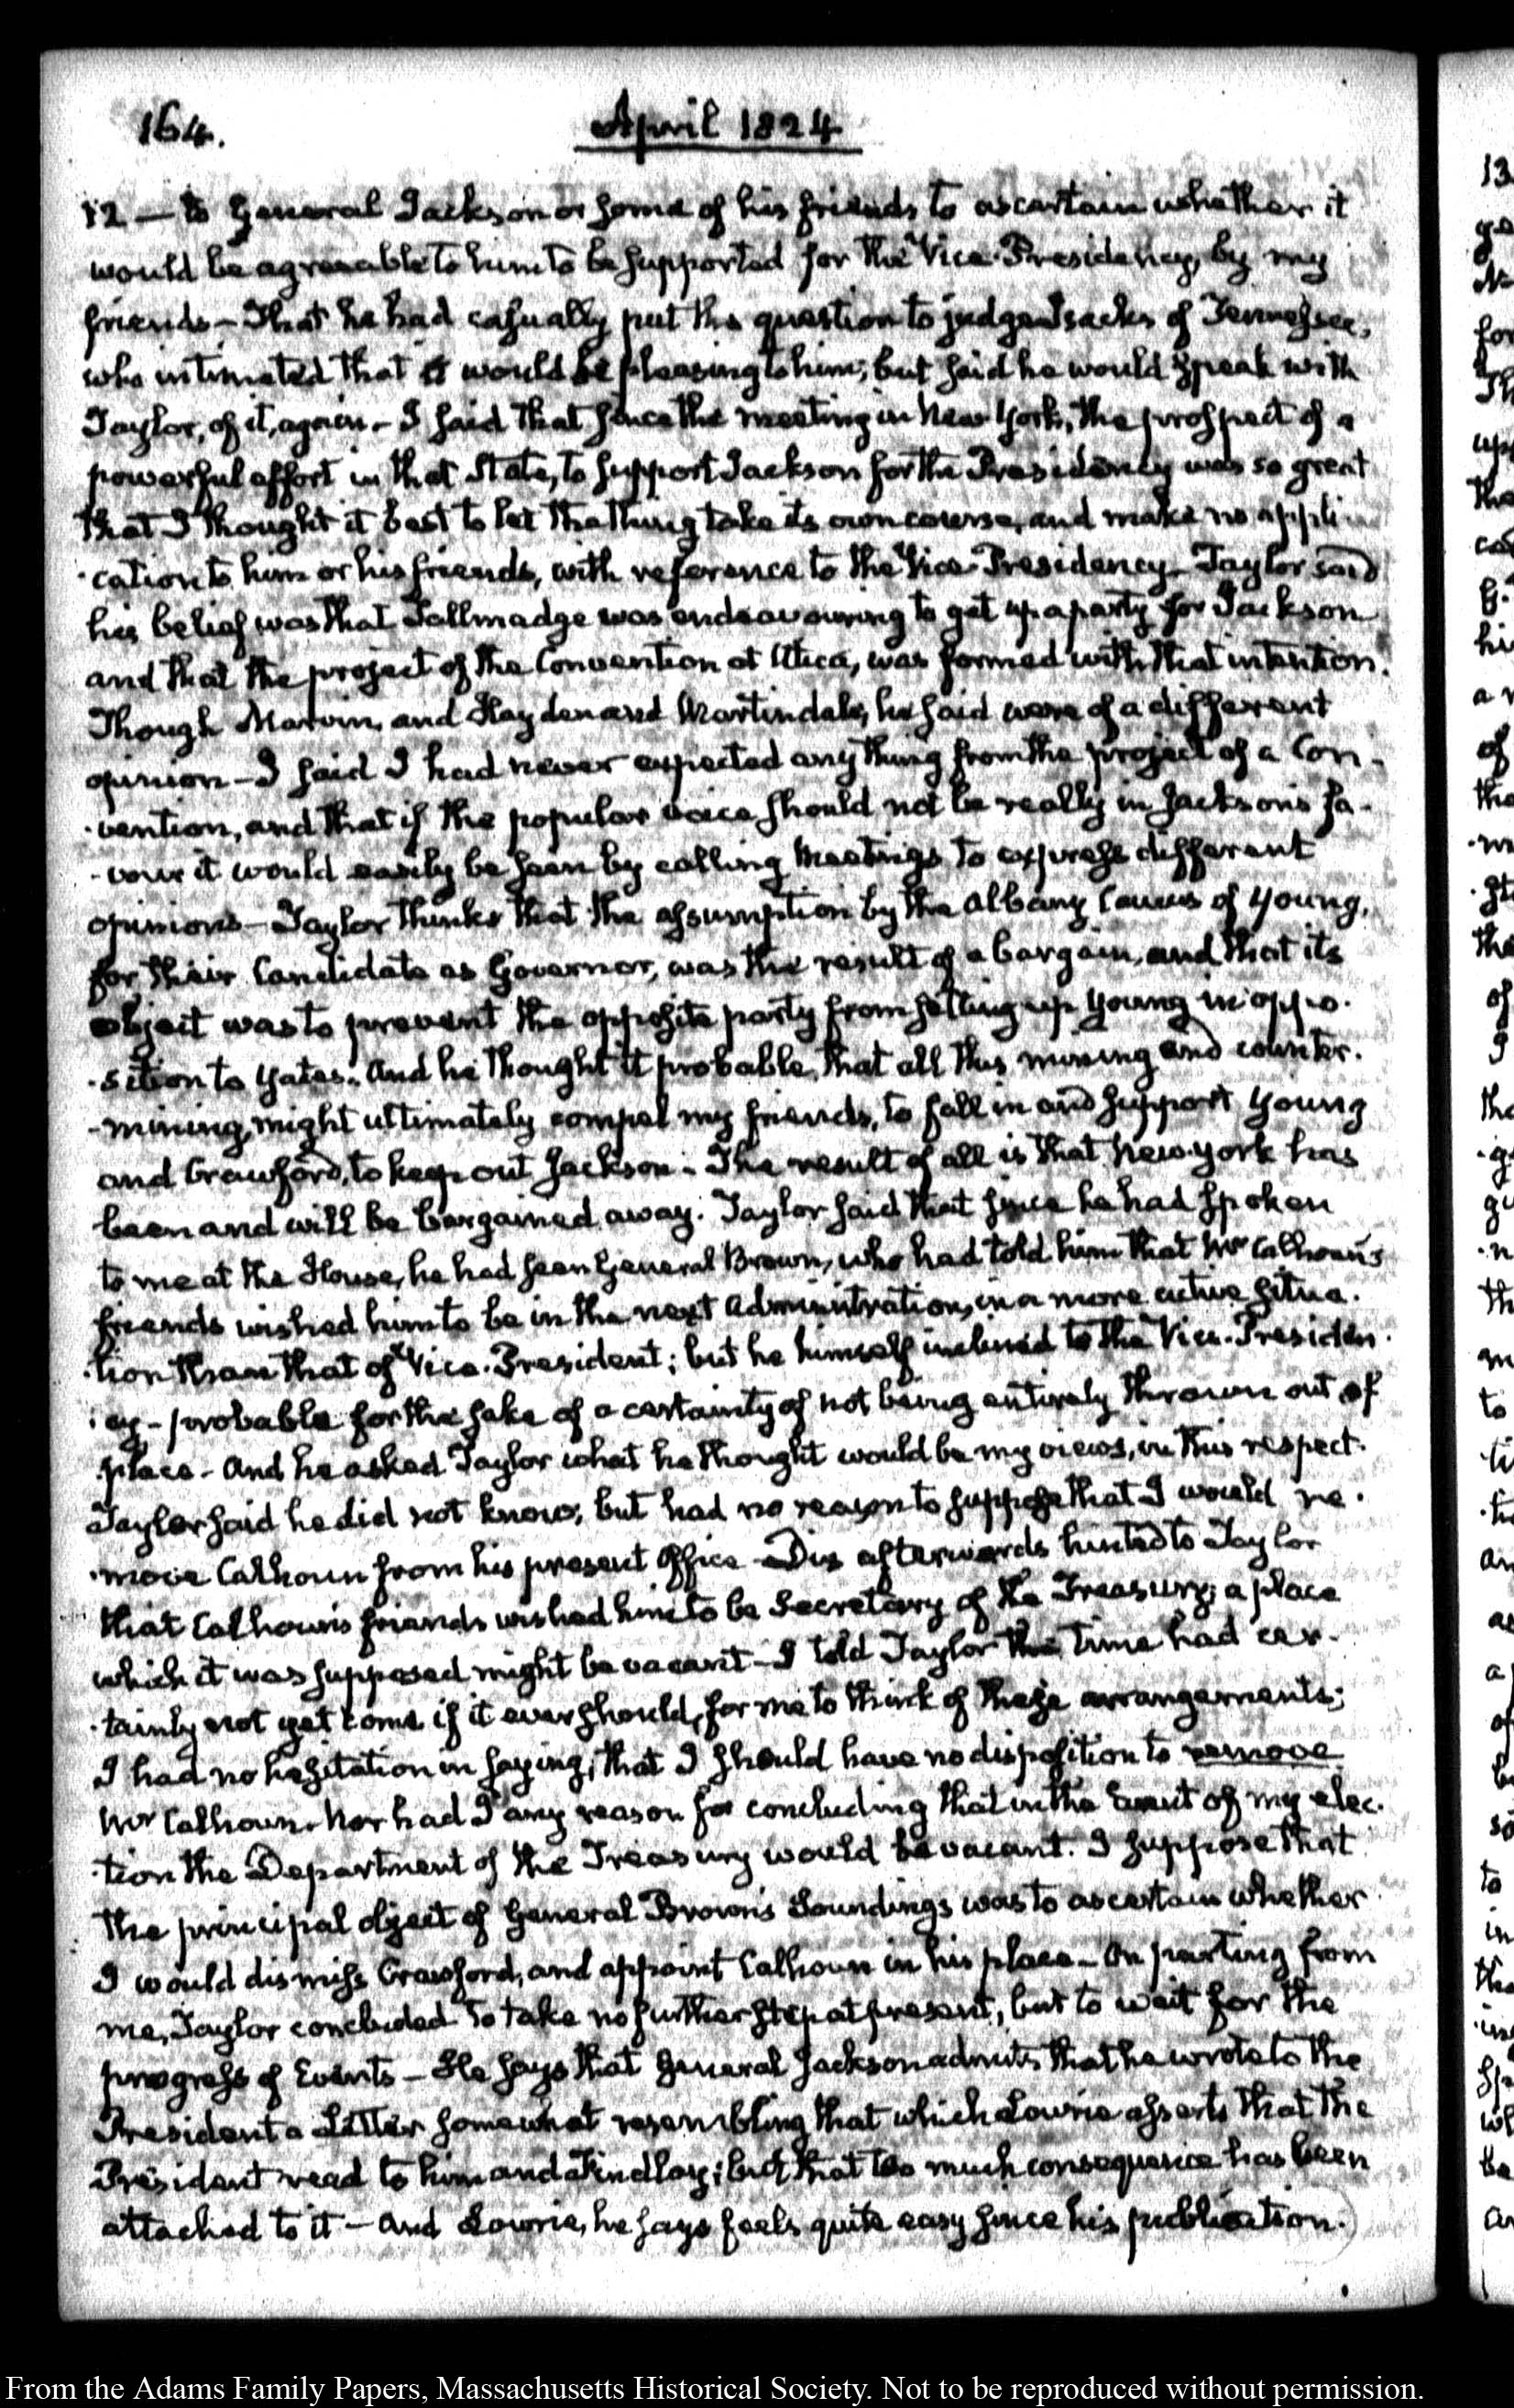 164.
April 1824
12 — to General Jackson or some of his friends to ascertain whether it
would be agreeable to him to be supported for the Vice-Presidency, by my
friends — That he had casually put the question to judge Isacks of Tennessee,
who intimated that it would be pleasing to him; but said he would speak with
Taylor, of it, again. — I said that since the meeting in New-York, the prospect of a
powerful effort in that State, to support Jackson for the Presidency was so great
that I thought it best to let the thing take its own course, and make no appli-
-cation to him or his friends, with reference to the Vice-Presidency — Taylor said
his belief was that Tallmadge was endeavouring to get up a party for Jackson
and that the project of the Convention at Utica, was formed with that intention.
Though Marvin, and Hayden and Martindale, he said were of a different
opinion — I said I had never expected any thing from the project of a Con-
-vention, and that if the popular voice should not be really in Jackson's fa-
-vour it would easily be seen by calling Meetings to express different
opinions — Taylor thinks that the assumption by the Albany Caucus of Young,
for their Candidate as Governor, was the result of a bargain, and that its
object was to prevent the opposite party from setting up Young in oppo-
-sition to Yates. And he thought it probable, that all this mining and counter-
-mining, might ultimately compel my friends, to fall in and support Young
and Crawford, to keep out Jackson. The result of all is that New-York has
been and will be bargained away. Taylor said that since he had spoken
to me at the House, he had seen General Brown, who had told him that Mr Calhoun's
friends wished him to be in the next Administration, in a more active situa-
-tion than that of Vice-President; but he himself inclined to the Vice-Presiden-
-cy — probable for the sake of a certainty of not being entirely thrown out of
place — And he asked Taylor what he thought would be my views, in this respect.
Taylor said he did not know, but had no reason to suppose that I would re-
-move Calhoun from his present Office — afterwards hinted to Taylor
that Calhoun's friends wished him to be Secretary of the Treasury; a place
which it was supposed might be vacant — I told Taylor the time had cer-
-tainly not yet come if it ever should, for me to think of these arrangements;
I had no hesitation in saying, that I should have no disposition to remove
Mr Calhoun. Nor had I any reason for concluding that in the Event of my elec-
-tion the Department of the Treasury would be vacant. I suppose that
the principal object of General Brown's Soundings was to ascertain whether
I would dismiss Crawford, and appoint Calhoun in his place — On parting from
me, Taylor concluded to take no further step at present, but to wait for the
progress of Events — He says that General Jackson admits that he wrote to the
President a Letter somewhat resembling that which Lowrie asserts that the
President read to him and Findlay; but that too much consequence has been
attached to it — And Lowrie, he says feels quite easy since his publication.
From the Adams Family Papers, Massachusetts Historical Society. Not to be reproduced without permission.